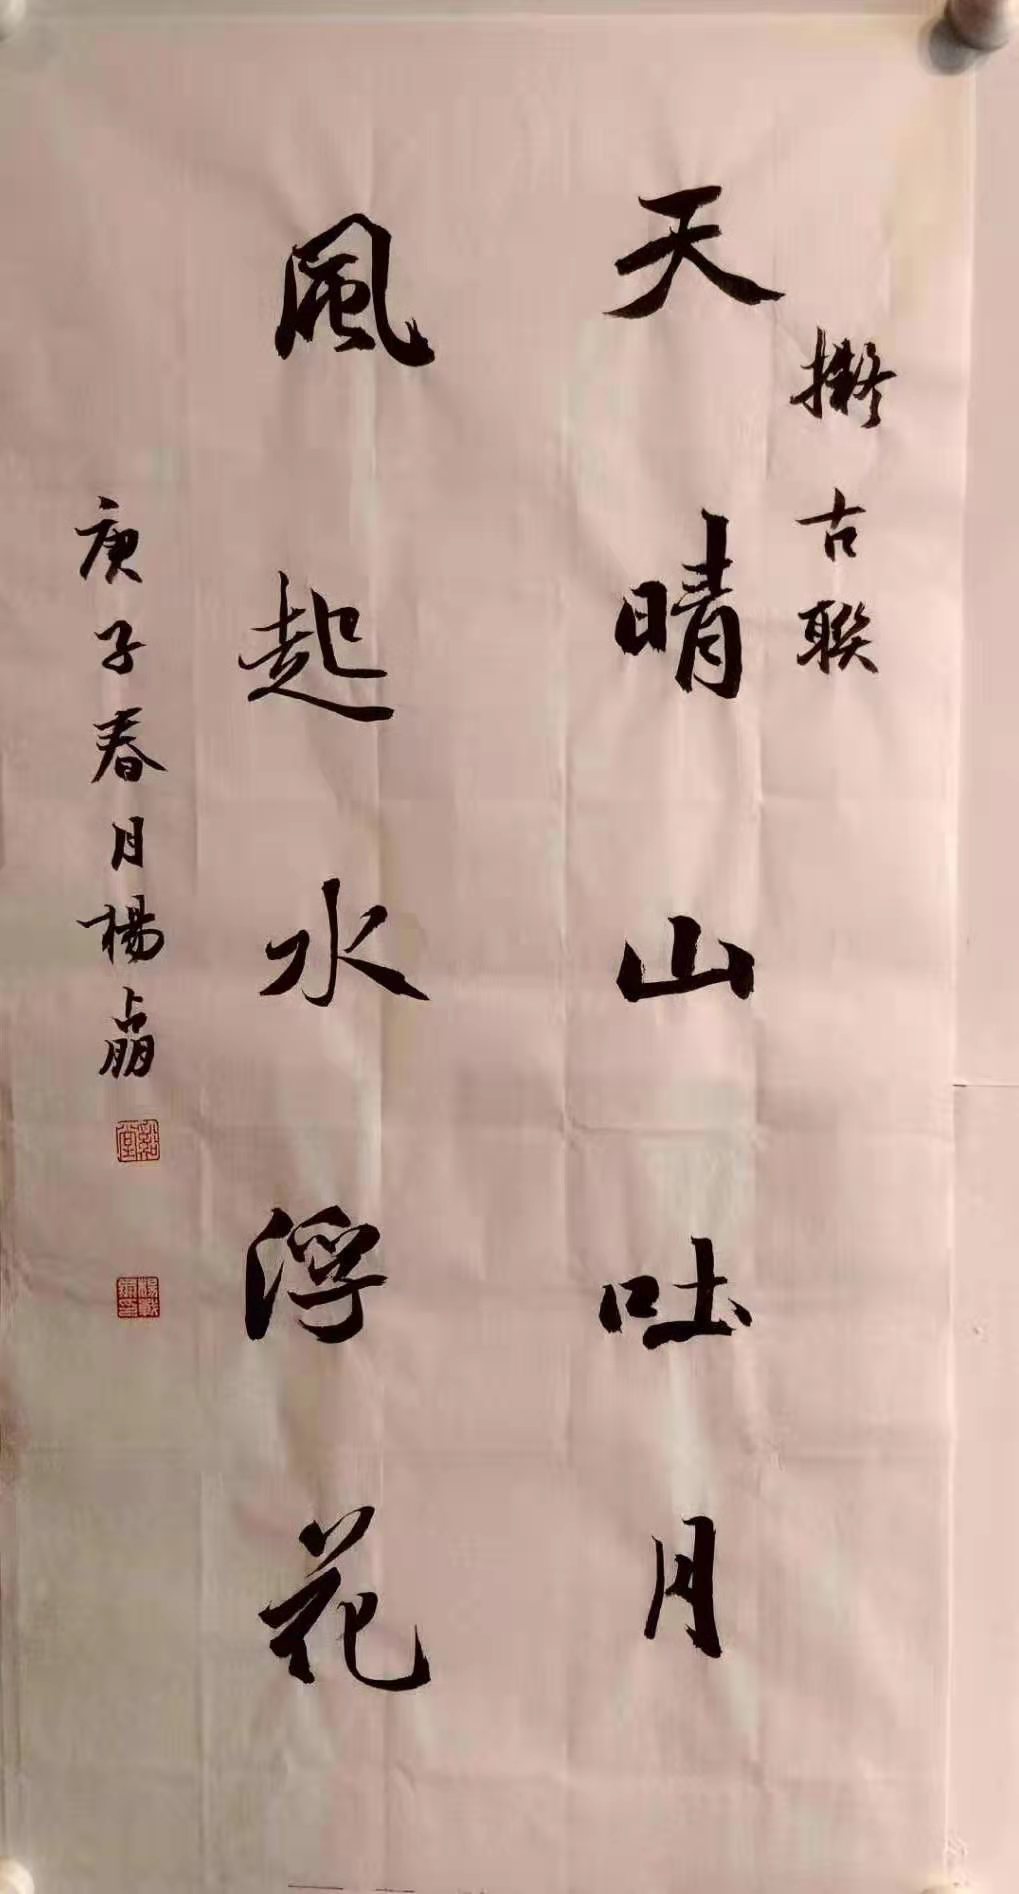 擬古聯
天晴山吐月
風起水浮花
庚子春月楊占朋